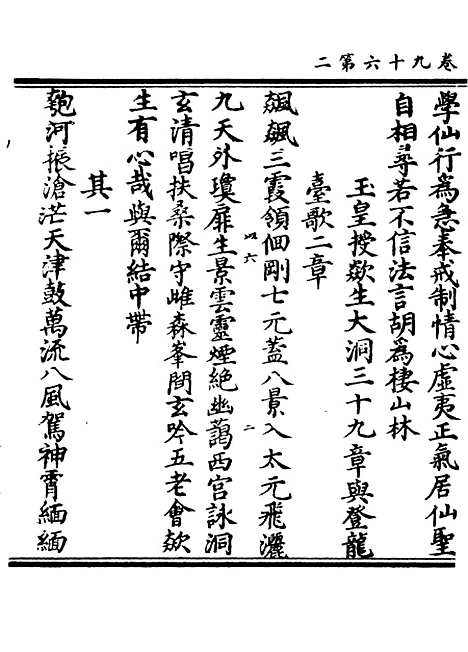 卷九十六第二
學仙行為急奉戒制情心虛夷正氣居仙聖
自相尋若不信法言胡為棲山林
玉皇授欻生大洞三十九章與登龍
臺歌二章
飆飆三霞領佃剛七元蓋八景入太元飛灑
九天外瓊扉生景雲靈煙絕幽藹西宮詠洞
玄清唱扶桑際守雌森峯間玄吟五老會欻
生有心哉與爾結中帶
以六
二
其一
匏河振滄茫天津鼓萬流八風駕神霄緬緬